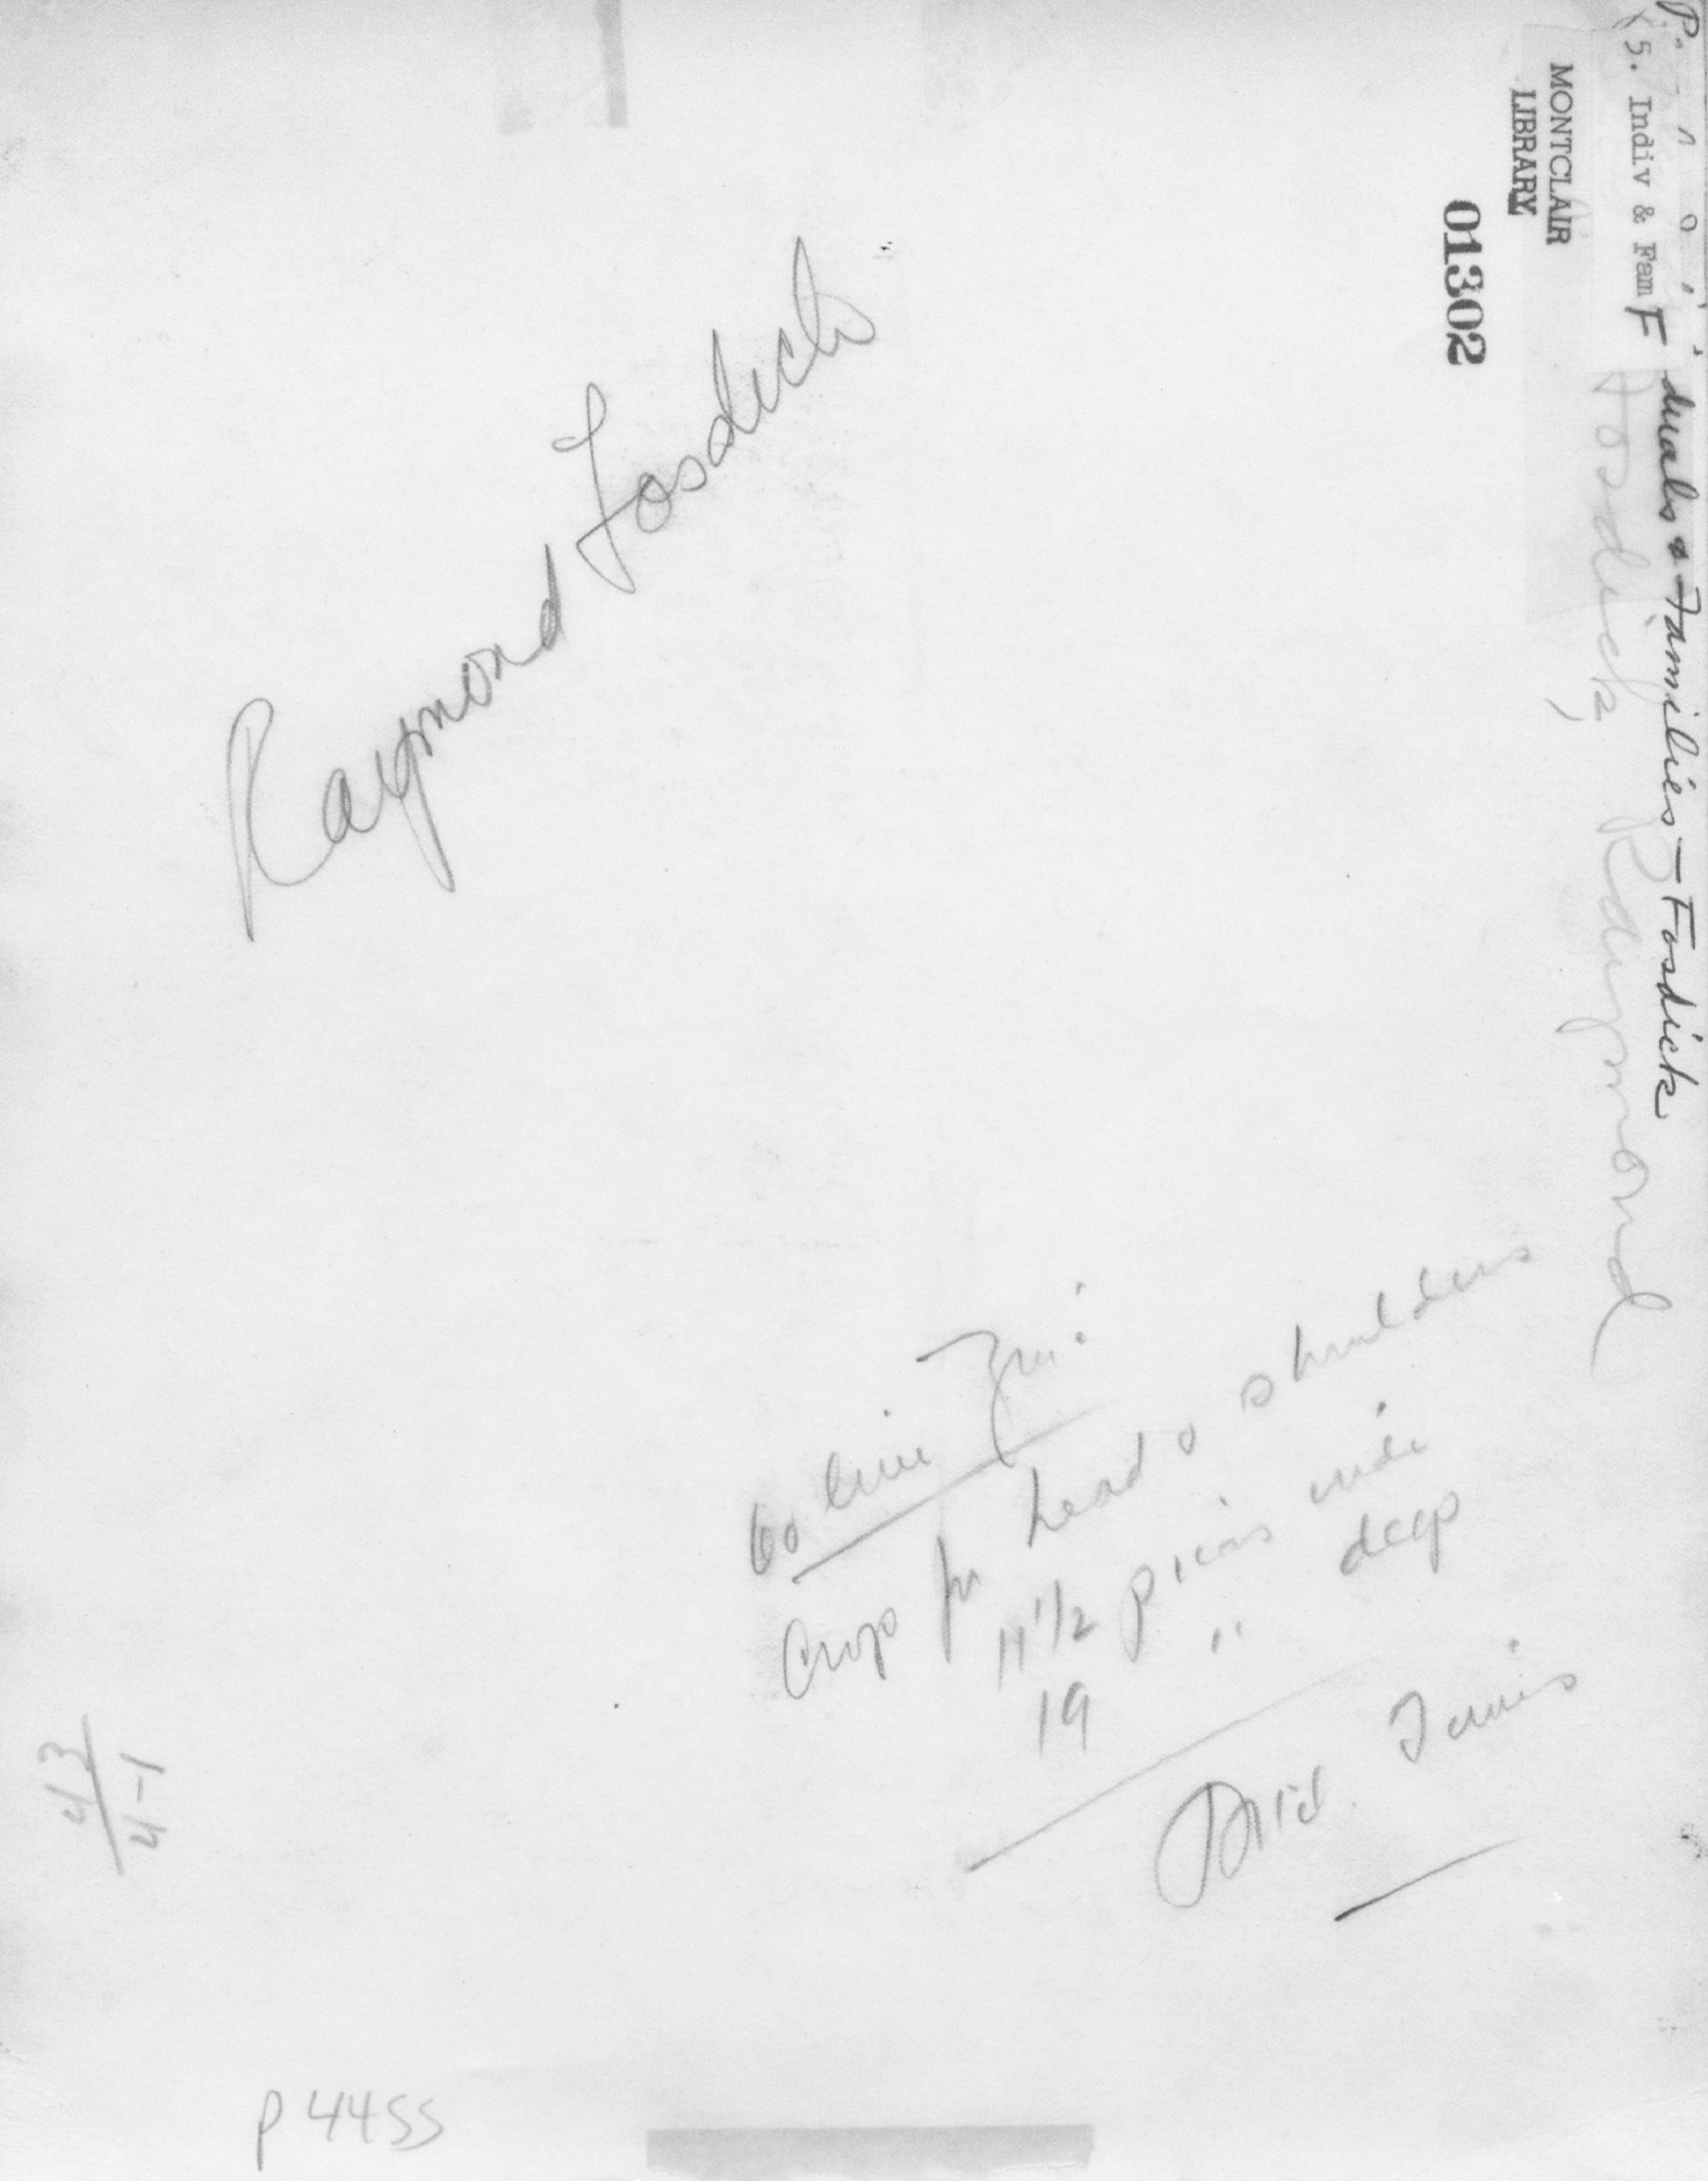 5. Indiv & Fam F
duals & Families - Fosdick
Fosdick, Raymond
MONTCLAIR
LIBRARY
01302
Raymond Fosdick
60 line
Crop for head & shoulders
11 1/2 picas wide
19 " deep
43
4-1
P 4455